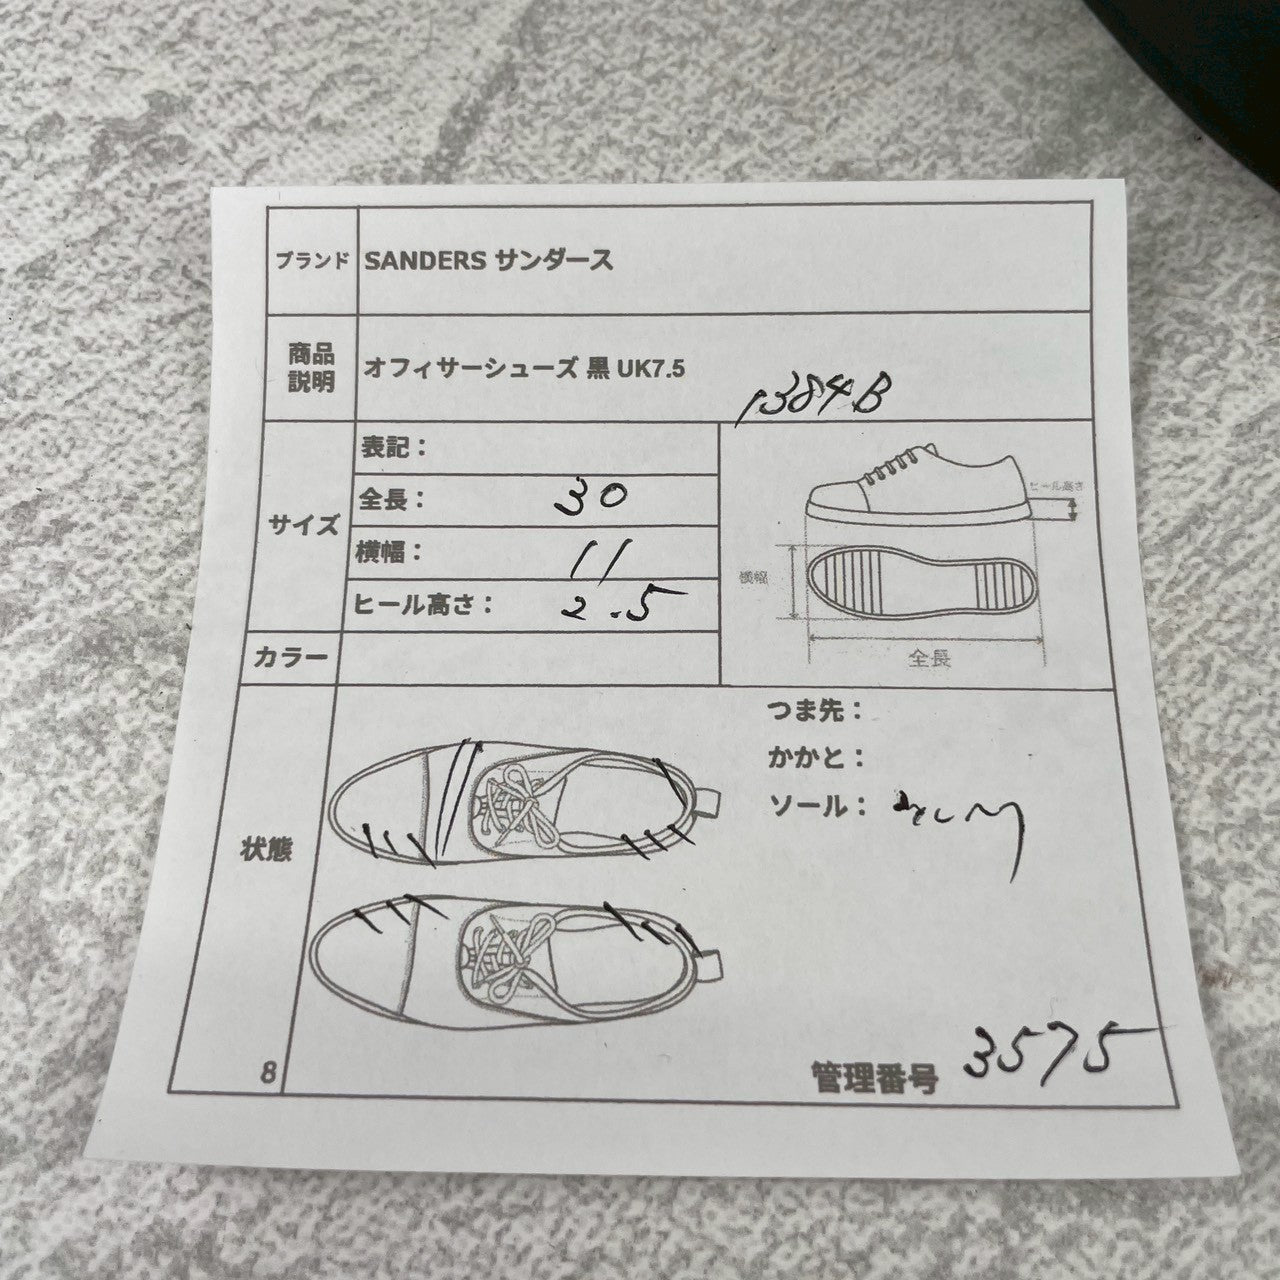 ブランド SANDERS サンダース
商品説明 オフィサーシューズ 黒 UK7.5
1384B
サイズ
表記：
全長： 30
横幅： 11
ヒール高さ： 2.5
ヒール高さ
横幅
全長
カラー
状態
つま先：
かかと：
ソール：
8
管理番号 3575